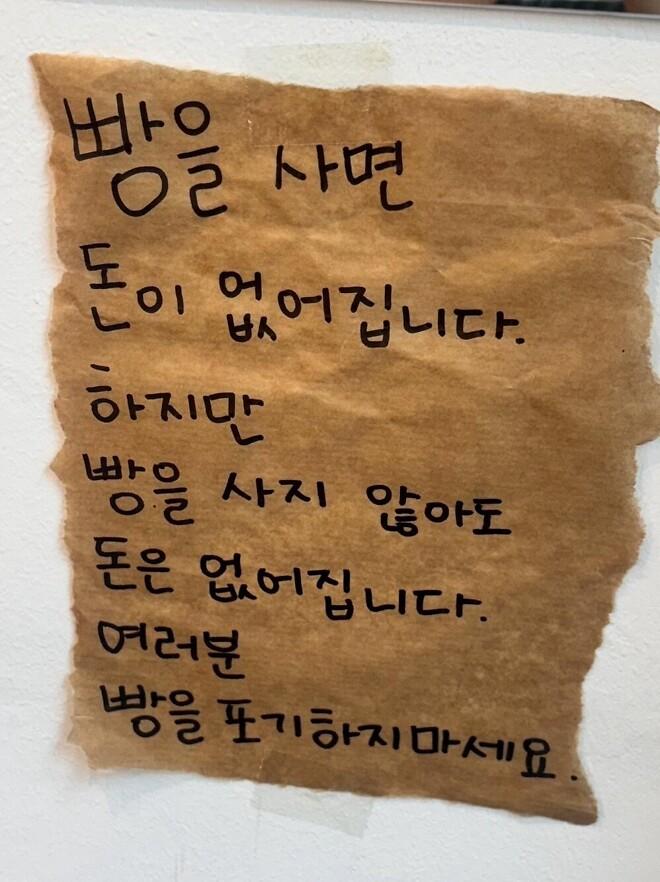 빵을 사면
돈이 없어집니다.
하지만
빵을 사지 않아도
돈은 없어집니다.
여러분
빵을 포기하지마세요.